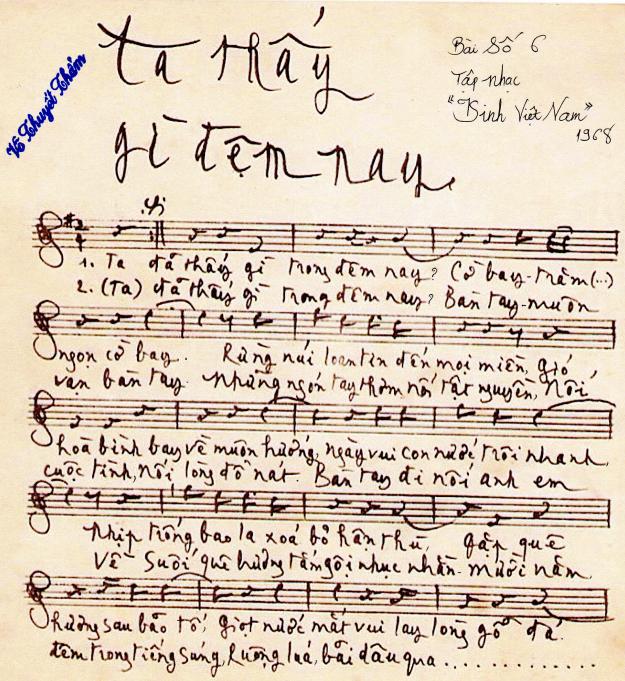 Ta thấy
gì đêm nay.
Bài Số 6
Tập nhạc
"Kinh Việt Nam"
1968
Võ Thuyết Thẩm
2
4
1. Ta đã thấy gì trong đêm nay? Cờ bay - trăm (..)
2. (Ta) đã thấy gì trong đêm nay? Bàn tay - muôn
ngọn cờ bay. Rừng núi loan tin đến mọi miền, gió
vạn bàn tay. Những ngón tay thơm nối tật nguyền, Nối
hoà bình bay về muôn hướng, ngày vui con nước trôi nhanh,
cuộc tình, nối lòng đổ nát. Bàn tay đi nối anh em
Nhịp trống bao la xoá bỏ hận thù, gặp quê
Về suối quê hương tắm gội nhục nhằn. Mười năm,
hương sau bão tố, giọt nước mắt vui lay lòng gỗ đá.
đêm trong tiếng súng, Ruộng lúa, bãi dâu qua . . . . . . . . . . . . .